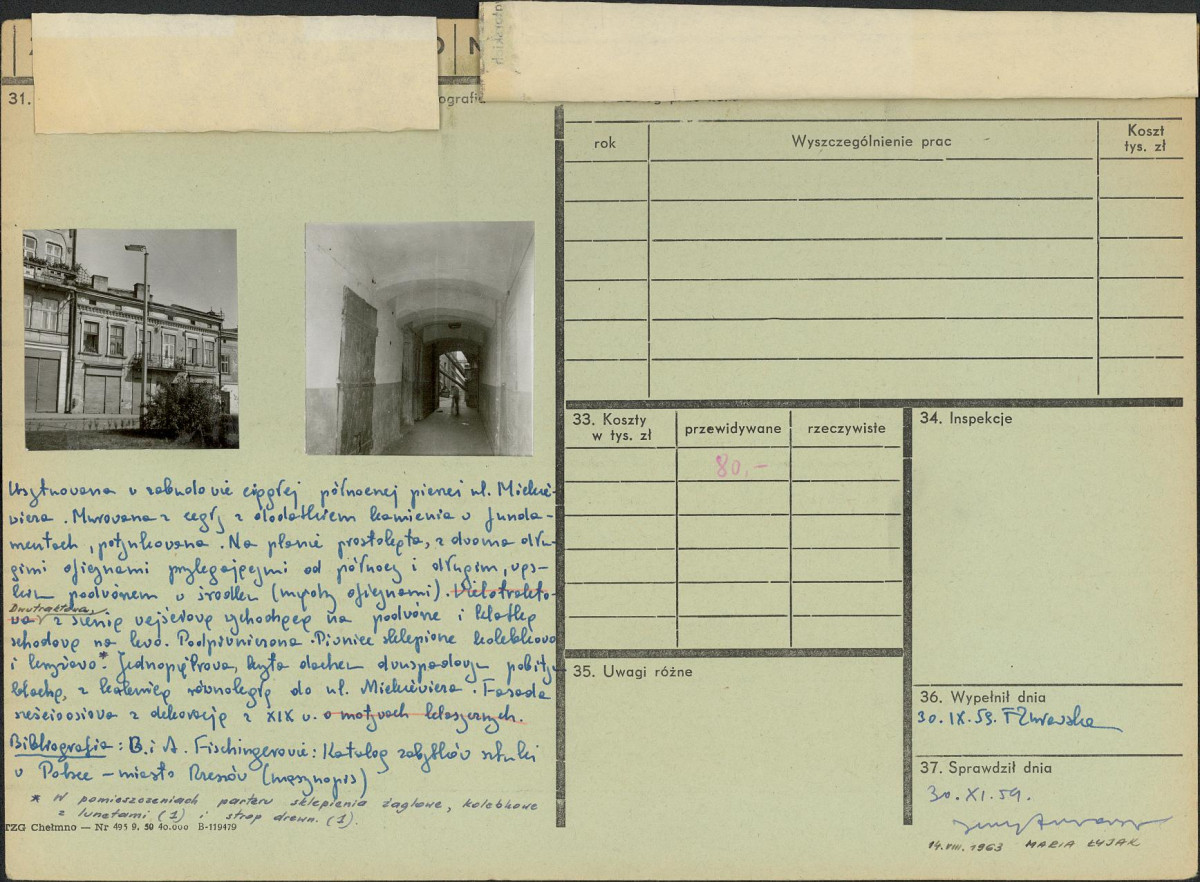 31.
ografia
rok
Wyszczególnienie prac
Koszt
tys. zł
33. Koszty
w tys. zł
przewidywane
rzeczywiste
80,-
34. Inspekcje
35. Uwagi różne
36. Wypełnił dnia
30.IX.59.
37. Sprawdził dnia
30.XI.59.
14.VIII.1963 MARIA ŁYJAK
Usytuowana w zabudowie ciągłej północnej pierzei ul. Mickie-
wicza. Murowana z cegły z dodatkiem kamienia w funda-
mentach, potynkowana. Na planie prostokąta, z dwoma dłu-
gimi oficynami przylegającymi od północy i długim, wąs-
kim podwórzem w środku (między oficynami). Wielotrakto-
Dwutraktowa,
wa, z sienią wejściową wychodzącą na podwórze i klatką
schodową na lewo. Podpiwniczona. Piwnice sklepione kolebkowo
i krzyżowo.* Jednopiętrowa, kryta dachem dwuspadowym pobitym
blachą, z kalenicą równoległą do ul. Mickiewicza. Fasada
sześcioosiowa z dekoracją z XIX w. o motywach klasycznych.
Bibliografia: B. i A. Fischingerowie: Katalog zabytków sztuki
w Polsce - miasto Rzeszów (maszynopis)
* W pomieszczeniach parteru sklepienia żaglowe, kolebkowe
z lunetami (1) i strop drewn. (1).
TZG Chełmno — Nr 495 9. 50 40.000 B-119479